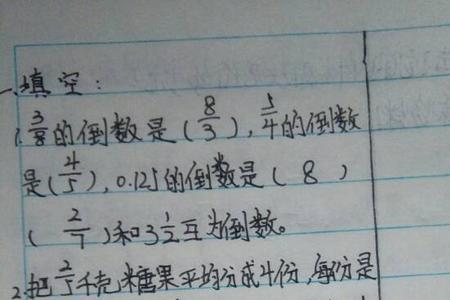 一、填空：
1. 3/8的倒数是(8/3)，5/4的倒数
是(4/5)，0.125的倒数是(8)
(2/7)和3 1/2互为倒数。
2. 把2/5千克糖果平均分成4份，每份是